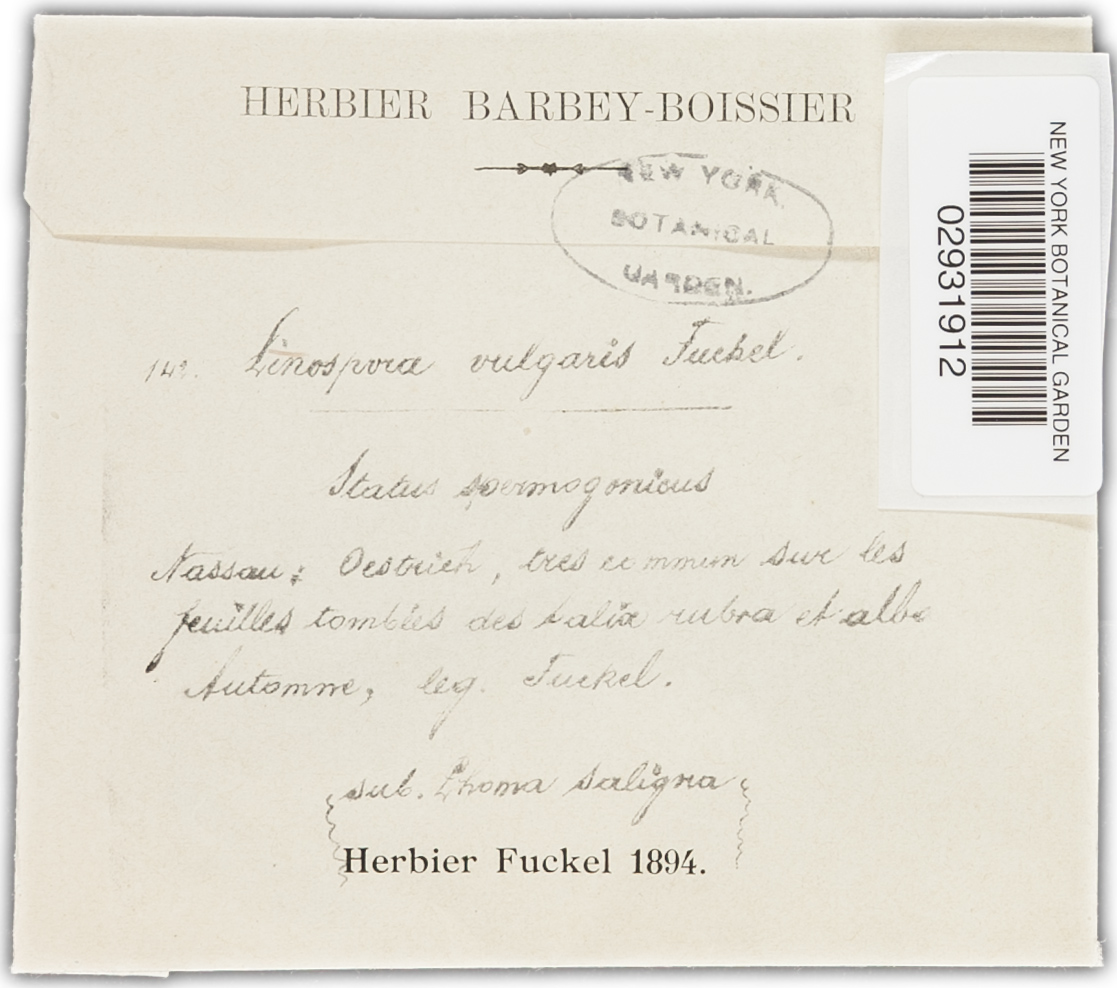 HERBIER BARBEY-BOISSIER
NEW YORK
BOTANICAL
GARDEN.
NEW YORK BOTANICAL GARDEN
02931912
Linospora vulgaris Fuckel.
Status spermogonicus
Nassau: Oestrich, tres commun sur les
feuilles tombées des salix rubra et alba
Automne, leg. Fuckel.
sub. Phoma saligna
Herbier Fuckel 1894.